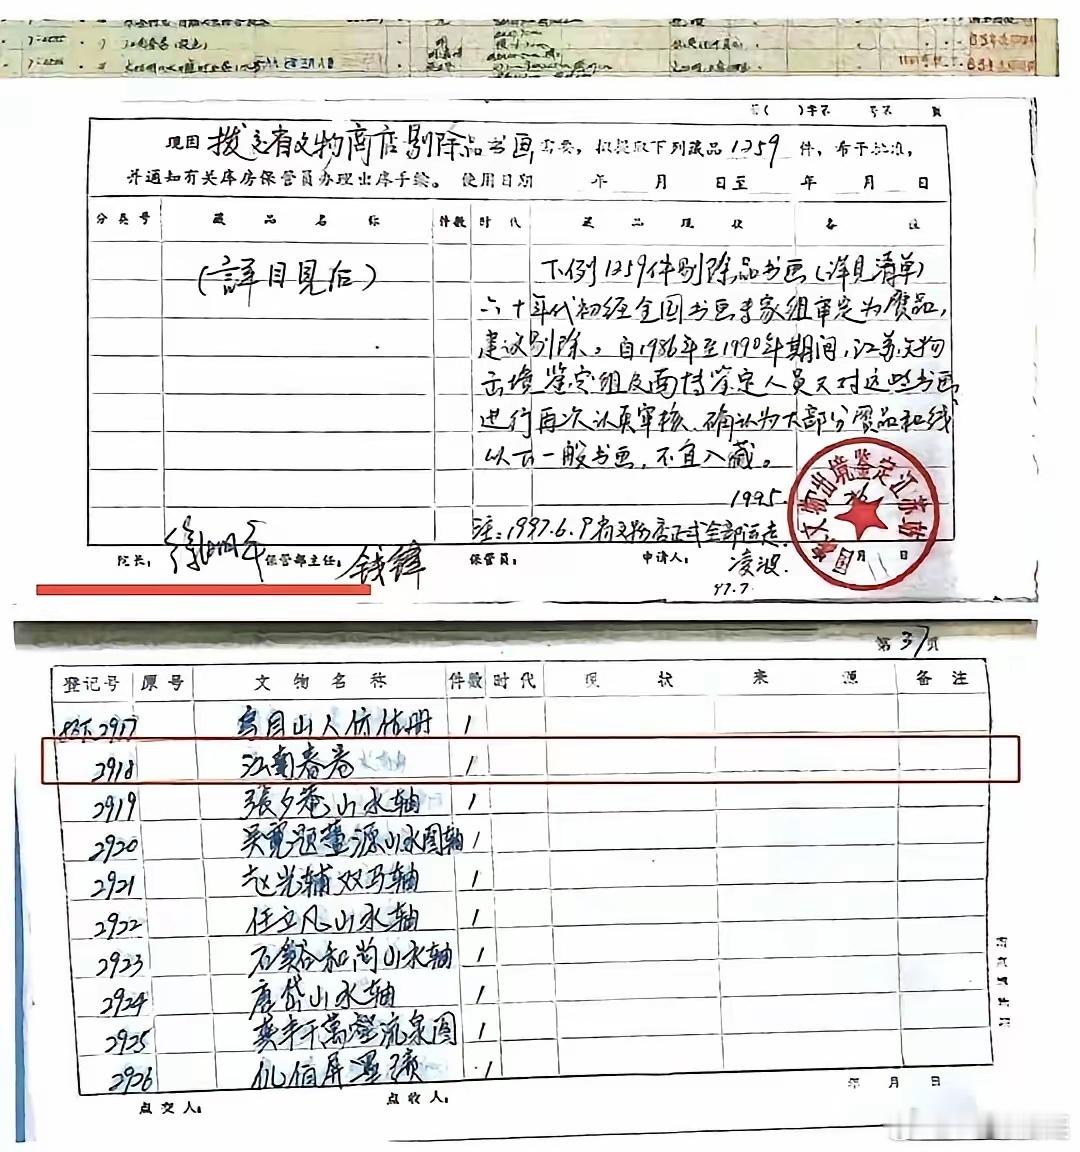 第( )字第 号第 页
现因 拨交省文物商店剔除品书画 需要，拟提取下列藏品 1259 件，希予批准，
并通知有关库房保管员办理出库手续。 使用日期 年 月 日至 年 月 日
分类号 藏品名称 件数 时代 藏品现状 备注
(詳目見后)
下例1259件剔除品书画(详见清单)
六十年代初经全国书画专家组审定为赝品,
建议剔除。自1986年至1990年期间,江苏文物
出境鉴定组及南博鉴定人员又对这些书画
进行再次认真审核、确认为大部分赝品和线
以下一般书画,不宜入藏。
1995.
注:1997.6.9省文物店正式全部运走.
院长: 徐湖平 保管部主任: 钱锋 保管员: 申请人: 凌波
97.7.
月 日
文物出境鉴定江苏站
第 37 页
登记号 原号 文物名称 件数 时代 现状 来源 备注
2917 烏目山人仿古册 1
2918 江南春卷 1
2919 張夕庵山水轴 1
2920 吴寬題董源山水图轴 1
2921 赵光辅双马轴 1
2922 任立凡山水轴 1
2923 石溪和尚山水轴 1
2924 唐岱山水轴 1
2925 龚半千萬壑流泉图 1
2926 1
年 月 日
点交人: 点收人: